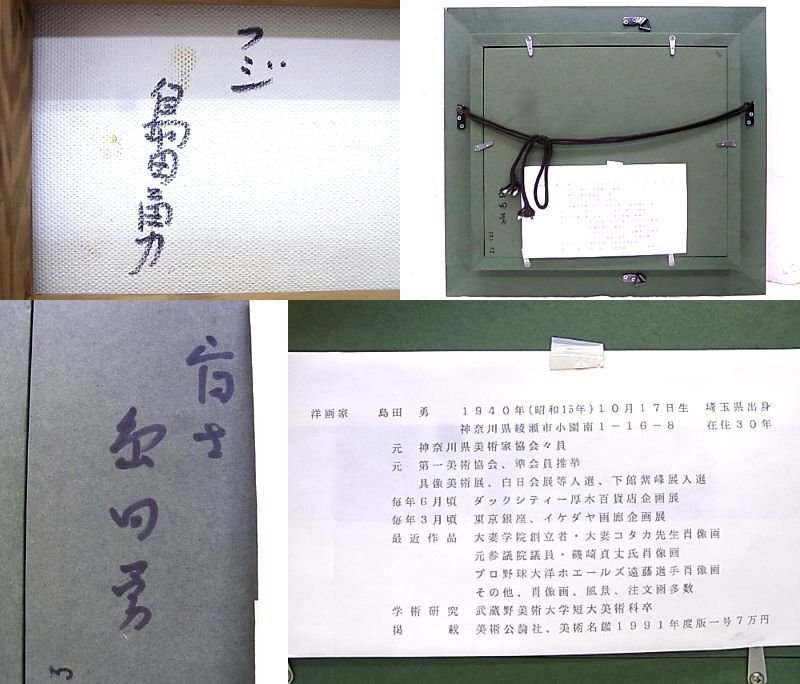 フジ
島田勇
富士
島田勇
3
洋画家 島田 勇 1940年(昭和15年)10月17日生 埼玉県出身
神奈川県綾瀬市小園南1-16-8 在住30年
元 神奈川県美術家協会々員
元 第一美術協会、準会員推挙
具像美術展、白日会展等入選、下館紫峰展入選
毎年6月頃 ダックシティー厚木百貨店企画展
毎年3月頃 東京銀座、イケダヤ画廊企画展
最近作品 大妻学院創立者・大妻コタカ先生肖像画
元参議院議員・磯崎貞丈氏肖像画
プロ野球大洋ホエールズ遠藤選手肖像画
その他、肖像画、風景、注文画多数
学術研究 武蔵野美術大学短大美術科卒
掲 載 美術公論社、美術名鑑1991年度版一号7万円